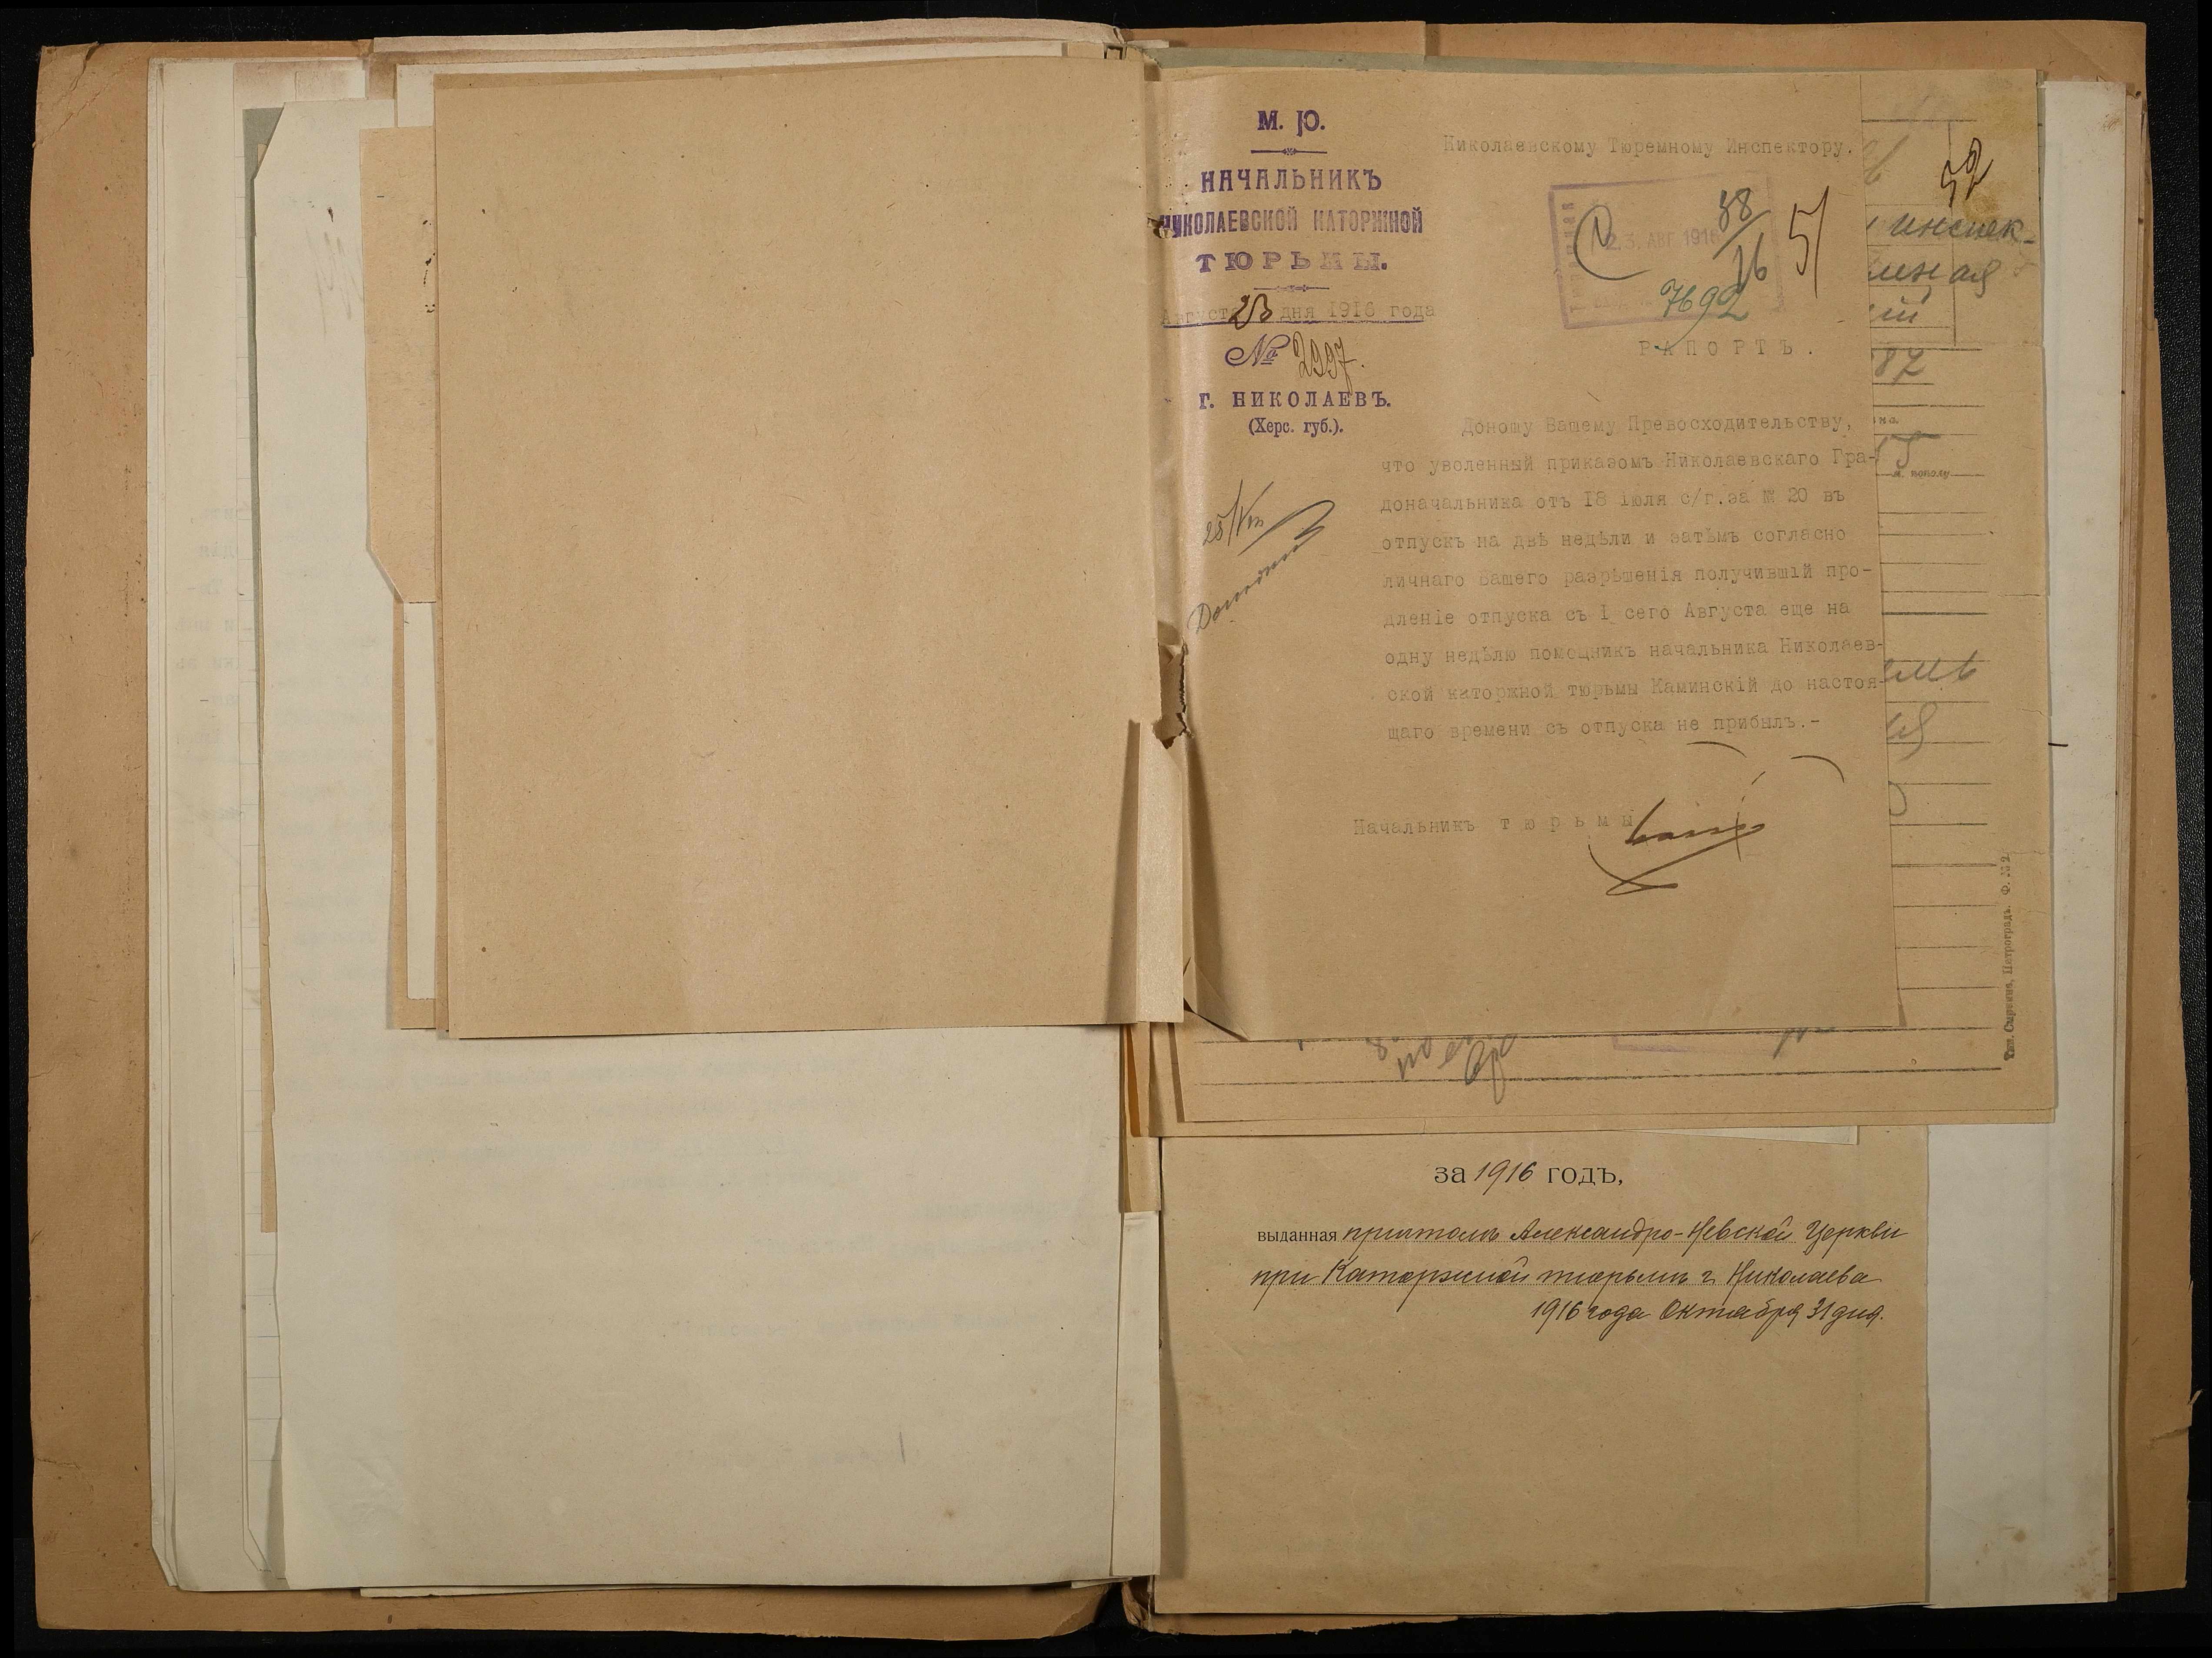 М. Ю.
НАЧАЛЬНИКЪ
НИКОЛАЕВСКОЙ КАТОРЖНОЙ
ТЮРЬМЫ.
Августа 23 дня 1916 года
№ 2997.
г. НИКОЛАЕВЪ.
(Херс. губ.).
25/VIII
Николаевскому Тюремному Инспектору.
23. АВГ 1916
38/16
51
7692
РАПОРТЪ.
Доношу Вашему Превосходительству,
что уволенный приказомъ Николаевскаго Гра-
доначальника отъ 18 Іюля с/г.за № 20 въ
отпускъ на двѣ недѣли и затѣмъ согласно
личнаго Вашего разрѣшенія получившій про-
дленіе отпуска съ I сего Августа еще на
одну недѣлю помощникъ начальника Николаев-
ской каторжной тюрьмы Каминскій до настоя-
щаго времени съ отпуска не прибылъ.-
Начальникъ тюрьмы
52
инспек-
87
Тип. Сыркина, Петроградъ. Ф. № 2
за 1916 годъ,
выданная причтомъ Александро-Невской Церкви
при Каторжной тюрьмѣ г. Николаева
1916 года Октября 31 дня.